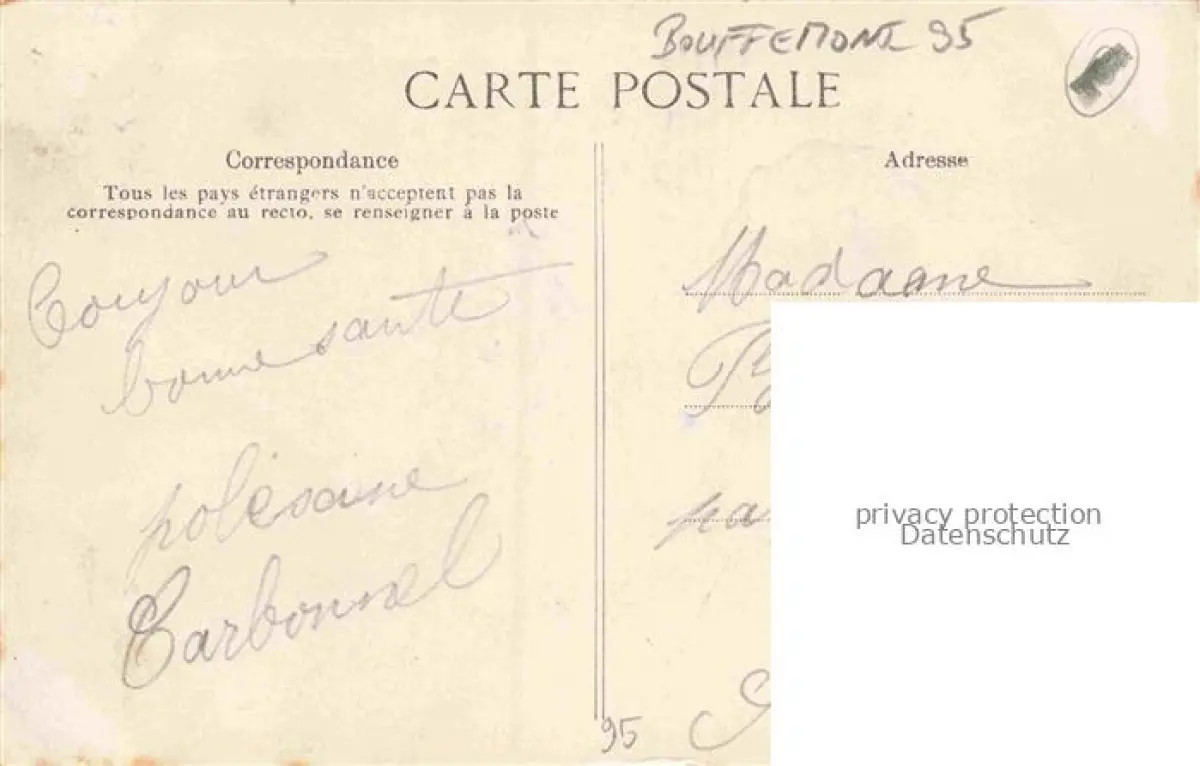 BOUFFEMONT 95
CARTE POSTALE
Correspondance
Tous les pays étrangers n'acceptent pas la
correspondance au recto, se renseigner à la poste
Bonjour
bonne santé
Carbonnel
95
Adresse
Madame
privacy protection
Datenschutz